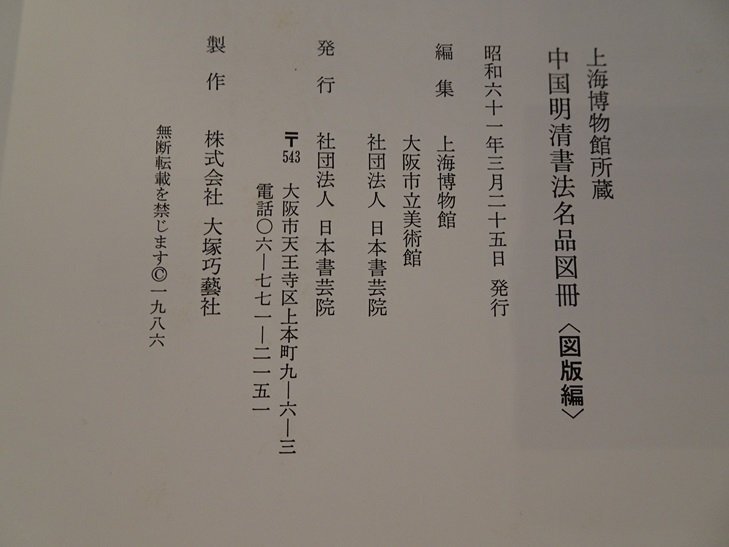 上海博物館所蔵
中国明清書法名品図冊〈図版編〉
昭和六十一年三月二十五日 発行
編集 上海博物館
大阪市立美術館
社団法人 日本書芸院
発行 社団法人 日本書芸院
〒543 大阪市天王寺区上本町九—六—三
電話〇六—七七一—二一五一
製作 株式会社 大塚巧藝社
無断転載を禁じます©一九八六